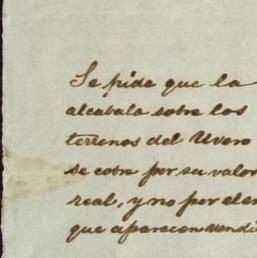 Se pide que la
alcabala sobre los
terrenos del Uvero
se cobre por su valor
real, y no por el en
que aparecen vendi